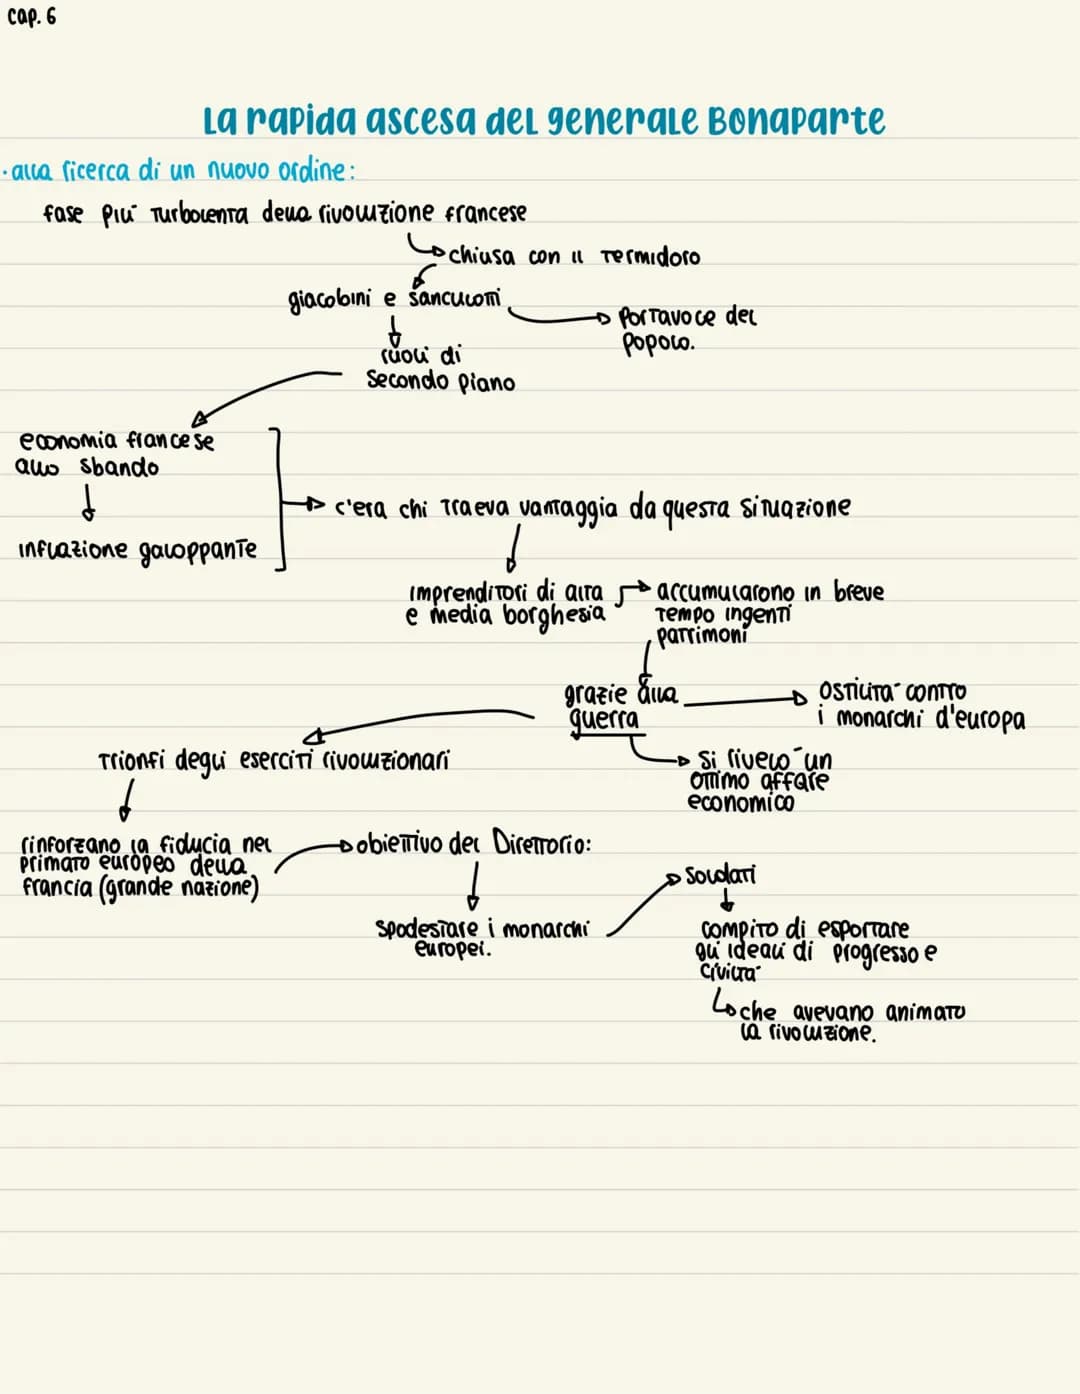 cap. 6
La rapida ascesa del generale Bonaparte
·alla ricerca di un nuovo ordine:
fase più turbolenta della rivoluzione francese
chiusa con il Termidoro
giacobini e sanculotti
portavoce del
popolo.
ruoli di
secondo piano
economia francese
allo sbando
c'era chi traeva vantaggia da questa situazione
inflazione galoppante
imprenditori di alta
e media borghesia
accumularono in breve
tempo ingenti
patrimoni
grazie alla
guerra
ostilità contro
i monarchi d'europa
trionfi degli eserciti rivoluzionari
si rivelò un
ottimo affare
economico
rinforzano la fiducia nel
primato europeo della
francia (grande nazione)
obiettivo del Direttorio:
soldati
spodestare i monarchi
europei.
compito di esportare
gli ideali di progresso e
civiltà
che avevano animato
la rivoluzione.